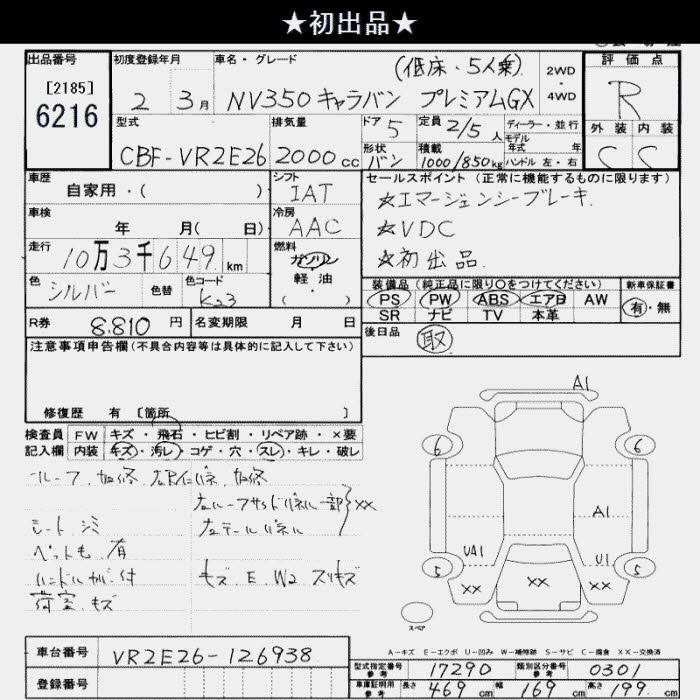 ★初出品★
出品番号
[2185]
6216
初度登録年月
2年 3月
車名・グレード
(低床・5人乗)
NV350キャラバン プレミアムGX
2WD・4WD
評価点
R
外装 内装
C C
型式
CBF-VR2E26
排気量
2000cc
ドア
5
形状
バン
定員
2/5人
積載
1000/850kg
ディーラー・並行
モデル年式 年
ハンドル 左・右
車歴
自家用・( )
シフト
IAT
車検
年 月( 日)
冷房
AAC
走行
10万3千649km
燃料
ガソリン
軽油
( ・ )
色
シルバー
色替
色コード
K23
R券
8.810円
名変期限 月 日
セールスポイント(正常に機能するものに限ります)
☆エマージェンシーブレーキ.
☆VDC
☆初出品.
装備品(純正品に限り○をつけてください)
PS PW ABS エアB AW
SR ナビ TV 本革
新車保証書
有・無
後日品
取
注意事項申告欄(不具合内容等は具体的に記入して下さい)
修復歴 有 [箇所 ]
検査員記入欄
FW キズ・飛石・ヒビ割・リペア跡・×要
内装 キズ・汚レ・コゲ・穴・スレ・キレ・破レ
ルーフ.加修.
加修
一部
××
左テールパネル
シート シミ
ペット毛.有
ハンドルカバー付
荷室.キズ
キズ.E.W2 スリキズ
A1
6
6
A1
UA1
U1
5
5
××
××
××
スペア
A-キズ E-エクボ U-凹み W-補修跡 S-サビ C-腐食 ××-交換済
車台番号
VR2E26-126938
登録番号
型式指定番号
参考
17290
類別区分番号
参考
0301
車庫証明用
参考
長さ 469cm
幅 169cm
高さ 199cm